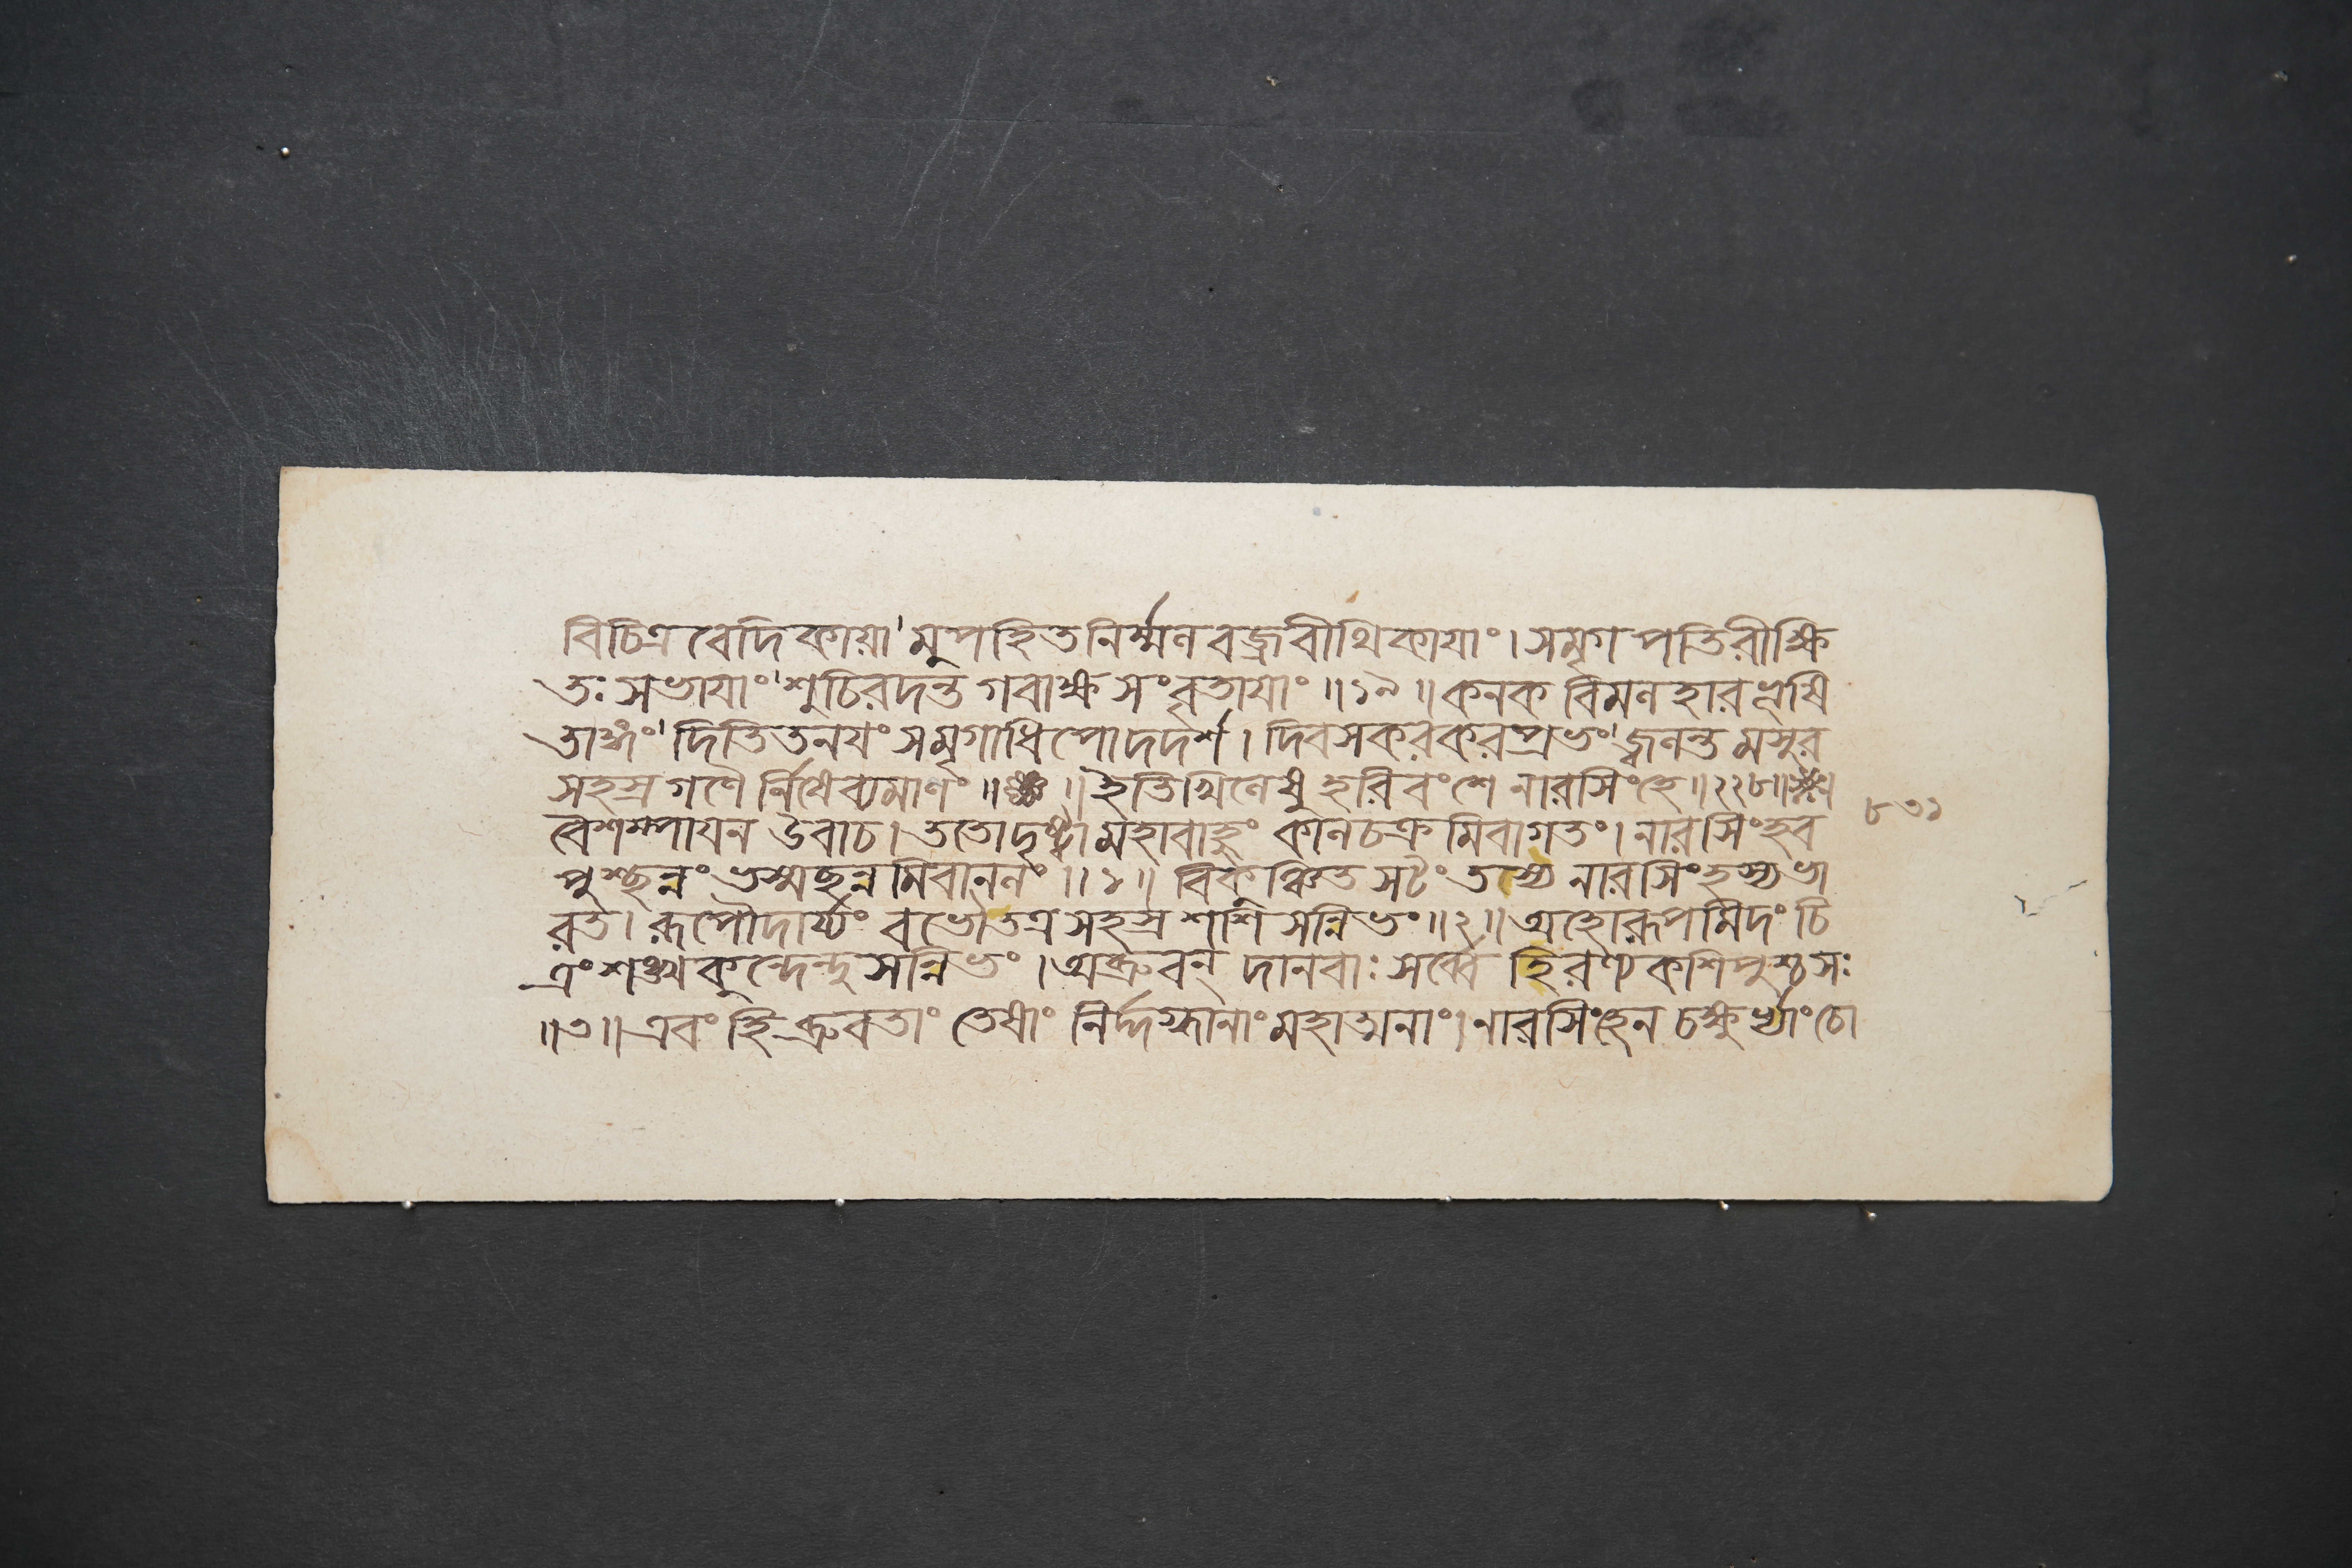 বিচিত্র বেদিকায়া'মুপহিতনির্ম্মলবজ্রবীথিকায়াং।সমৃগপতিরীক্ষি
তঃসভায়াং'শুচিরদন্তগবাক্ষসংবৃতায়াং॥১৯॥কনকবিমলহারভূষি
তাঙ্গং'দিতিতনয়ংসমৃগাধিপোদদর্শ।দিবসকরকরপ্রভং'জ্বলন্তমসুর
সহস্রগণৈর্নিষেব্যমাণং॥ ॥ইতিখিলেষুহরিবংশেনারসিংহে॥২২৮॥
বৈশম্পায়নউবাচ।ততোদৃষ্ট্বামহাবাহুংকালচক্রমিবাগতং।নারসিংহব
পুশ্ছন্নংভস্মছন্নমিবানলং॥১॥ বিকুঞ্চিতসটংতস্যনারসিংহস্যভা
রত।রূপৌদার্য্যংবভৌতত্রসহস্রশশিসন্নিভং॥২॥অহোরূপমিদংচি
ত্রংশঙ্খকুন্দেন্দুসন্নিভং।অব্রুবন্ দানবাঃসর্ব্বে হিরণ্যকশিপুশ্চসঃ
॥৩॥এবংহিব্রুবতাং তেষাং নির্দ্দগ্ধানাংমহাত্মনাং।নারসিংহেনচক্ষুর্ভ্যাংচো
৮৩১